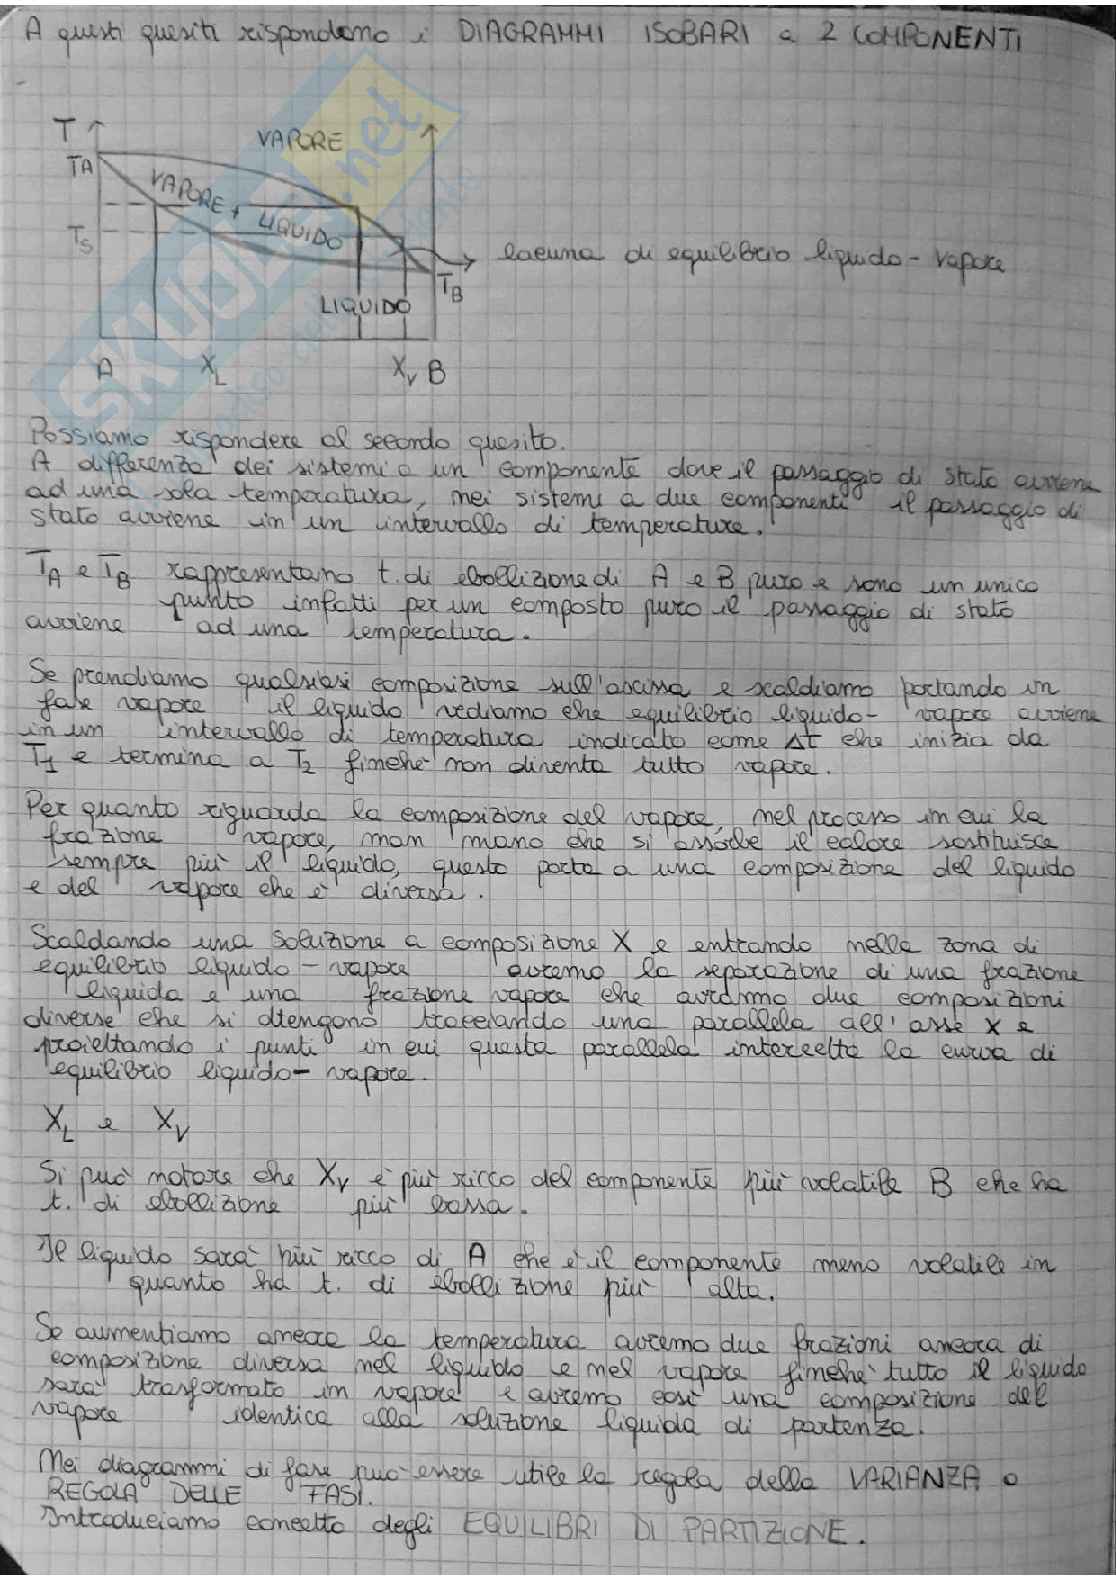 A questi quesiti rispondono i DIAGRAMMI ISOBARI a 2 COMPONENTI
T
VAPORE
TA
VAPORE + LIQUIDO
TS
lacuna di equilibrio liquido-vapore
TB
LIQUIDO
A XL XV B
SKUOLA.net
Possiamo rispondere al secondo quesito.
A differenza dei sistemi a un componente dove il passaggio di stato avviene
ad una sola temperatura, nei sistemi a due componenti il passaggio di
stato avviene in un intervallo di temperature.
TA e TB rappresentano t. di ebollizione di A e B puro e sono un unico
punto infatti per un composto puro il passaggio di stato
avviene ad una temperatura.
Se prendiamo qualsiasi composizione sull'ascissa e scaldiamo portando in
fase vapore il liquido vediamo che equilibrio liquido- vapore avviene
in un intervallo di temperatura indicato come Δt che inizia da
T1 e termina a T2 finchè non diventa tutto vapore.
Per quanto riguarda la composizione del vapore, nel processo in cui la
frazione vapore, man mano che si assorbe il calore sostituisce
sempre più il liquido, questo porta a una composizione del liquido
e del vapore che è diversa.
Scaldando una soluzione a composizione X e entrando nella zona di
equilibrio liquido-vapore avremo la separazione di una frazione
liquida e una frazione vapore che avranno due composizioni
diverse che si ottengono tracciando una parallela all'asse x e
proiettando i punti in cui questa parallela intercetta la curva di
equilibrio liquido-vapore.
XL e XV
Si può notare che XV è più ricco del componente più volatile B che ha
t. di ebollizione più bassa.
Il liquido sarà più ricco di A che è il componente meno volatile in
quanto ha t. di ebollizione più alta.
Se aumentiamo ancora la temperatura avremo due frazioni ancora di
composizione diversa nel liquido e nel vapore finchè tutto il liquido
sarà trasformato in vapore e avremo così una composizione del
vapore identica alla soluzione liquida di partenza.
Nei diagrammi di fase può essere utile la regola della VARIANZA o
REGOLA DELLE FASI.
Introduciamo concetto degli EQUILIBRI DI PARTIZIONE.